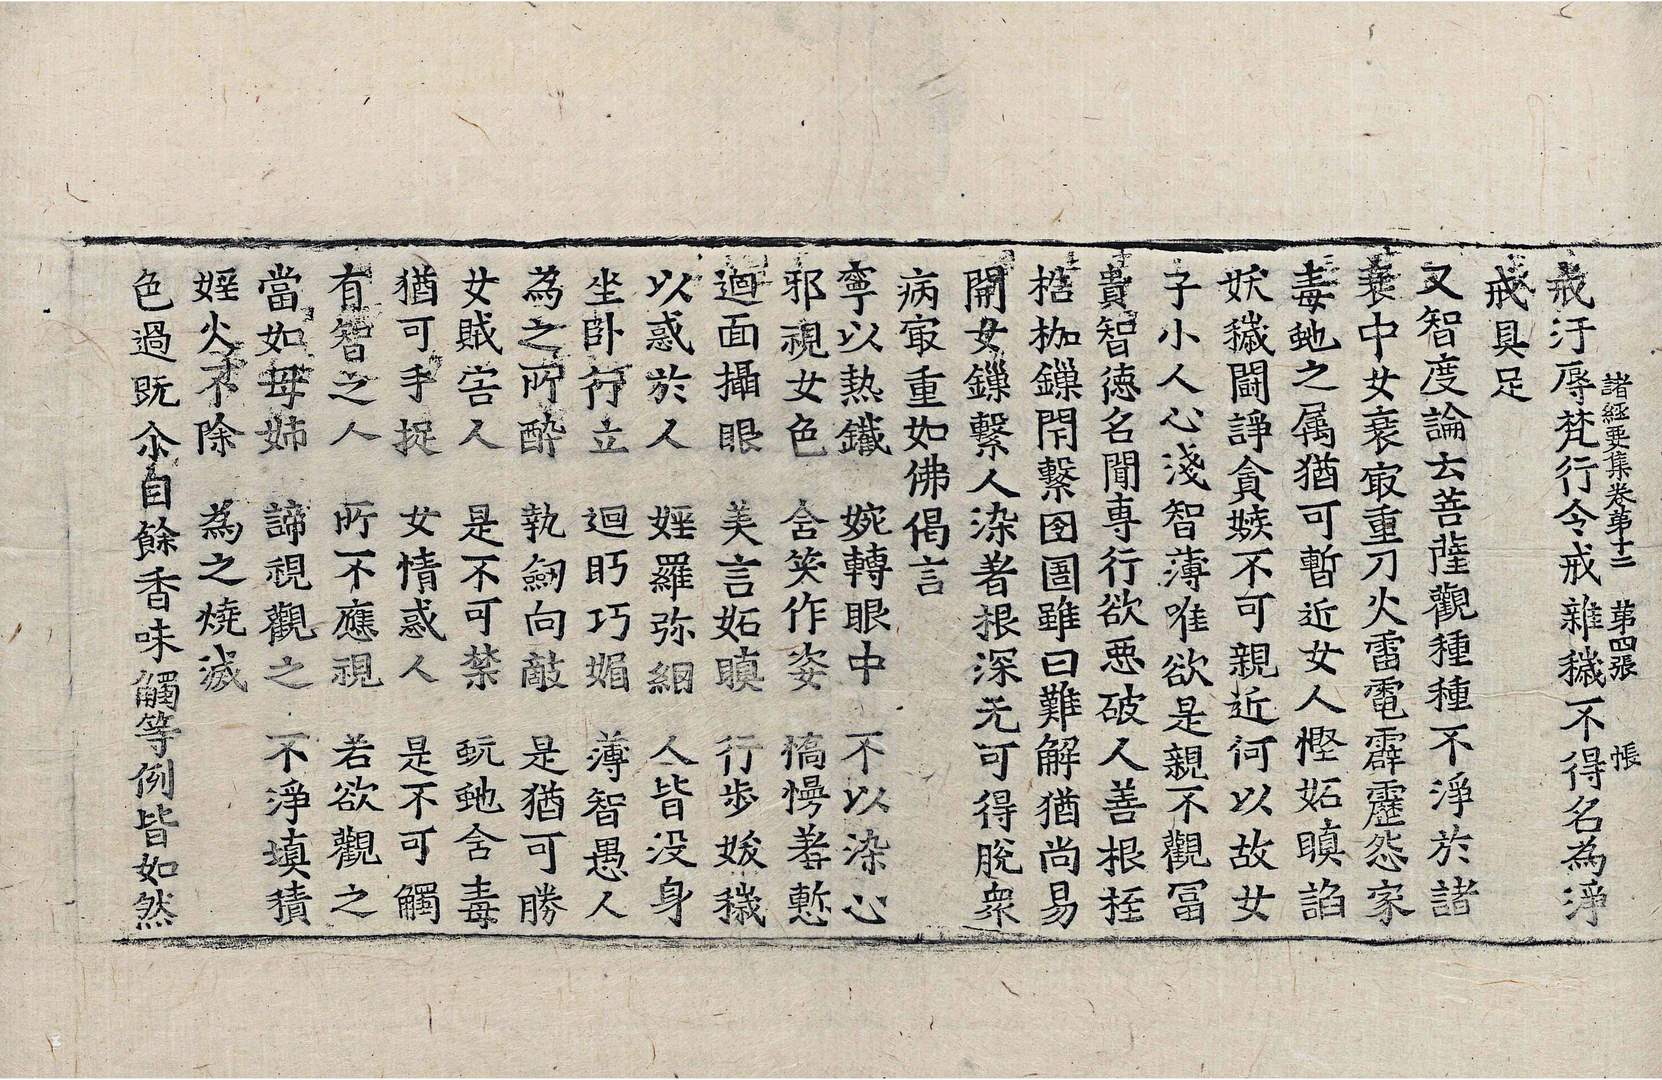 戒汙辱梵行令戒雜穢不得名為淨
諸經要集卷第十二　第四張　帳
戒具足
又智度論云菩薩觀種種不淨於諸
衰中女衰㝡重刀火雷電霹靂怨家
毒虵之属猶可暫近女人慳妬瞋諂
妖穢鬪諍貪嫉不可親近何以故女
子小人心淺智薄唯欲是親不觀冨
貴智徳名聞專行欲惡破人善根桎
梏枷鏁閇繫囹圄雖曰難解猶尚易
開女鏁繫人染著根深无可得脫衆
病㝡重如佛偈言
寧以熱鐵　婉轉眼中　不以染心
邪視女色　含笑作姿　憍慢著慙
迴面攝眼　美言妬瞋　行步妖穢
以惑於人　婬羅弥網　人皆没身
坐卧行立　迴眄巧媚　薄智愚人
為之所醉　執劒向敵　是猶可勝
女賊害人　是不可禁　蚖虵含毒
猶可手捉　女情惑人　是不可觸
有智之人　所不應視　若欲觀之
當如母姉　諦視觀之　不淨填積
婬火不除　為之燒滅
色過既尒自餘香味觸等例皆如然